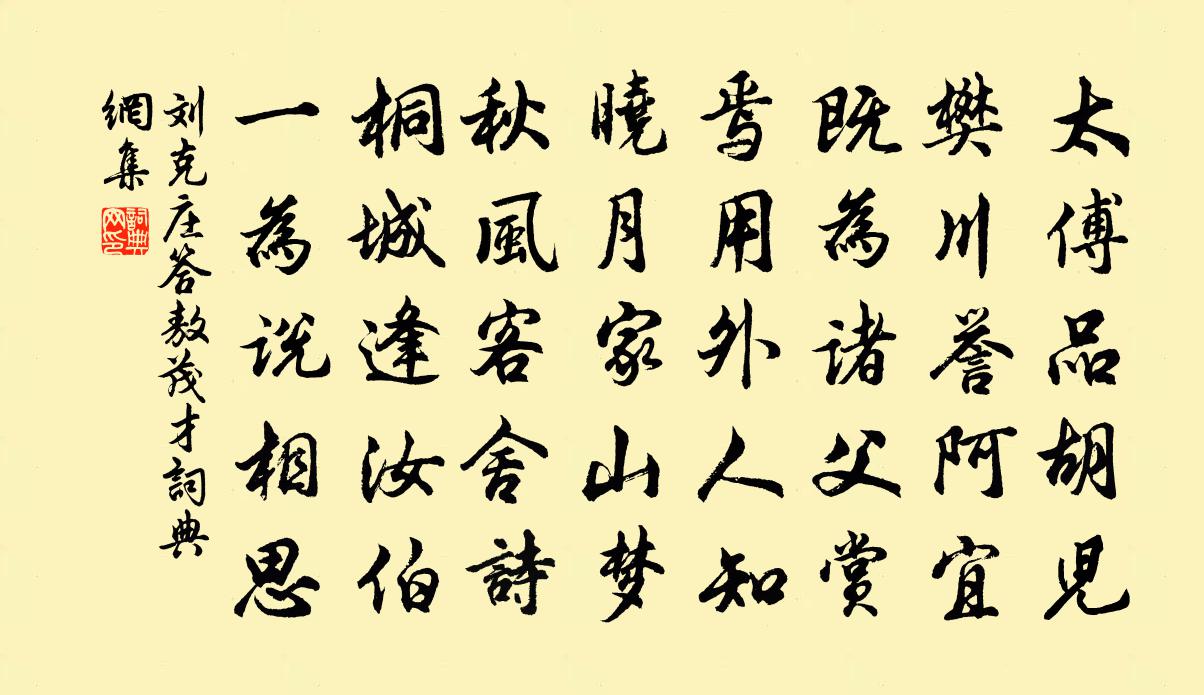 太傅品胡児
樊川誉阿宜
既為諸父賞
焉用外人知
曉月家山梦
秋風客舍詩
桐城逢汝伯
一為说相思
刘克庄答敖茂才詞典
網集
詞典
网印